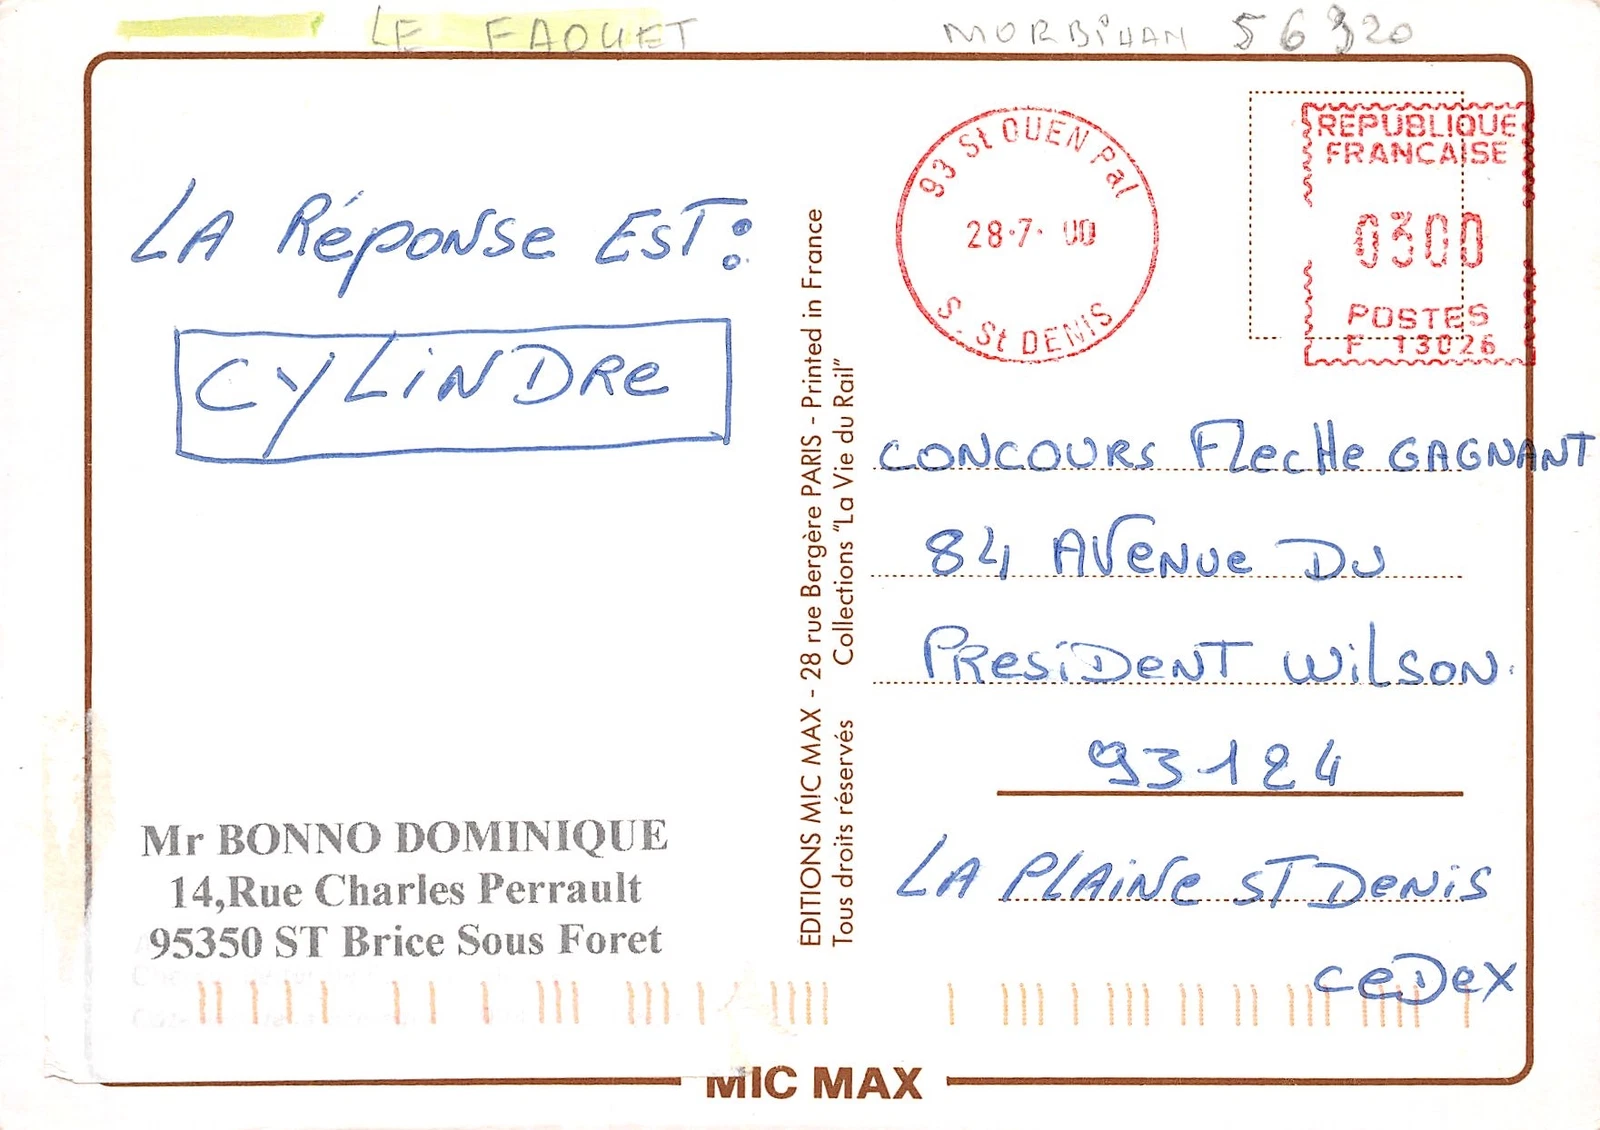 LE FAOUET MORBiHAN 56320
93 St OUEN Pal
28-7- 00
S. St DENIS
REPUBLIQUE
FRANCAISE
0300
POSTES
F 13026
LA RéPONSe EST:
CYLiNDRe
EDITIONS MIC MAX - 28 rue Bergère PARIS - Printed in France
Tous droits réservés Collections "La Vie du Rail"
CONCOURS FlecHe GAGNANT
84 AVeNUe DU
PResiDeNT WiLSON.
93124
LA PLAiNe ST DeNiS
CeDeX
Mr BONNO DOMINIQUE
14,Rue Charles Perrault
95350 ST Brice Sous Foret
MIC MAX